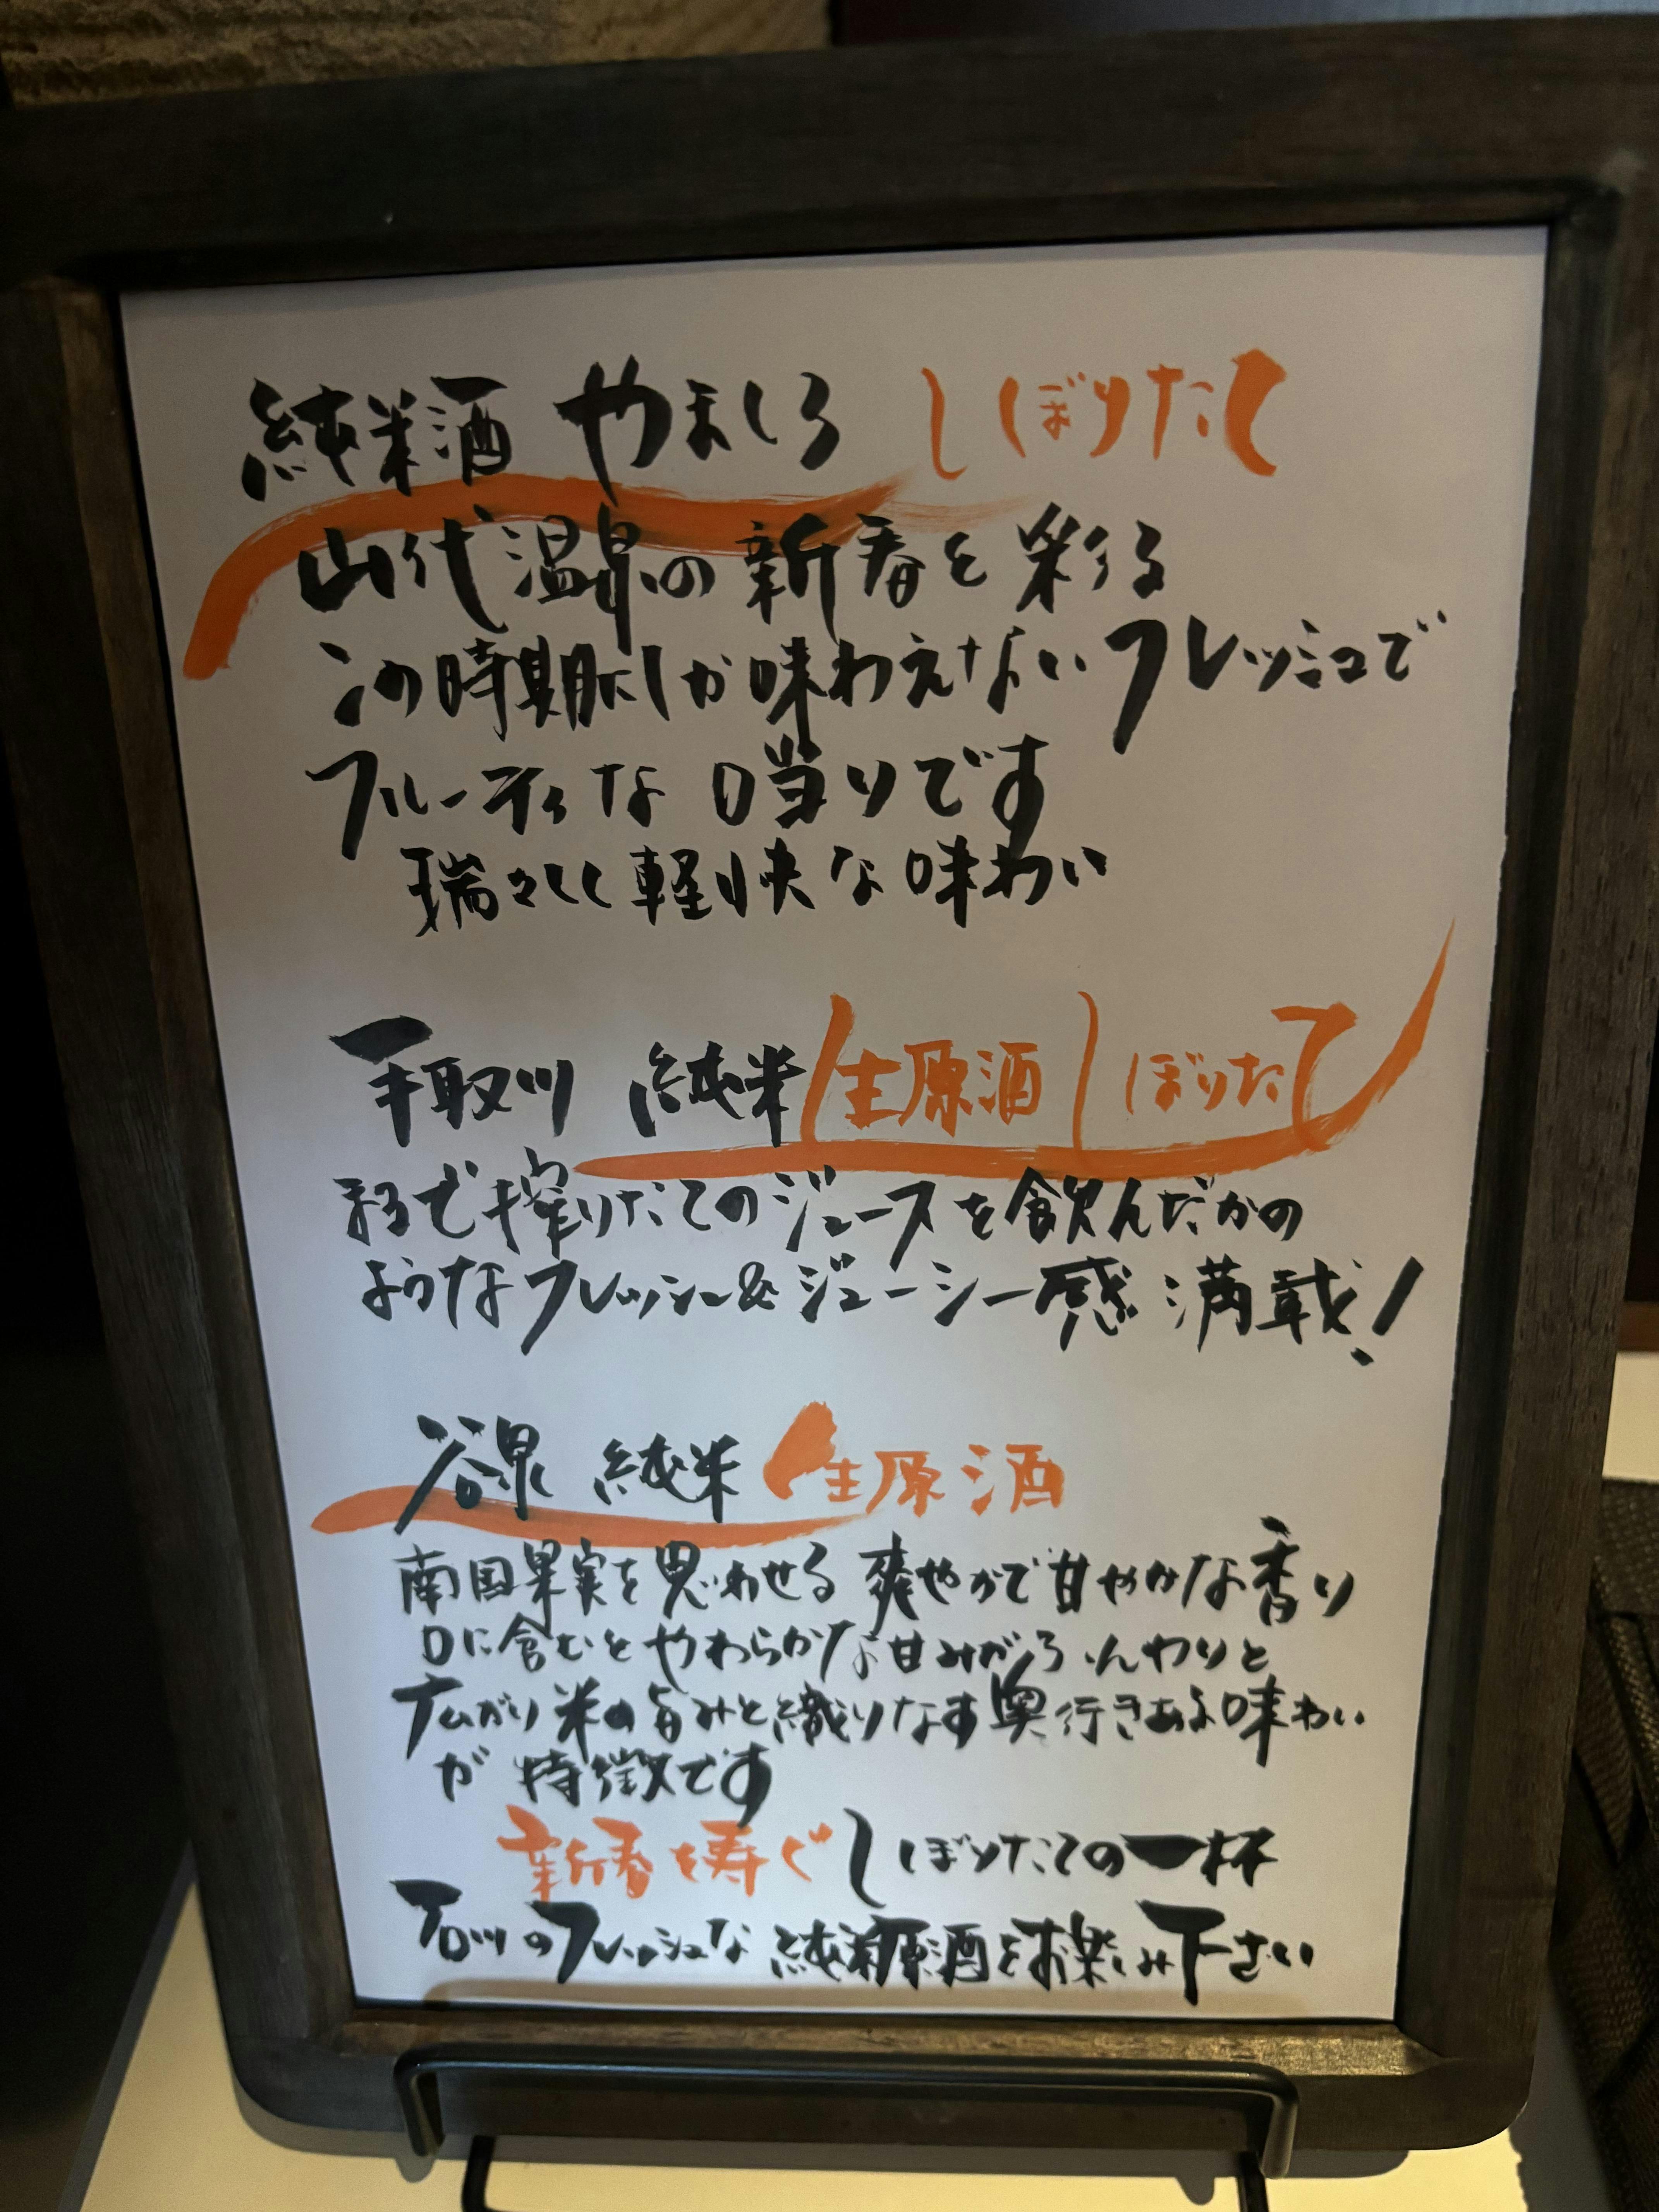 純米酒 やましろ しぼりたて
山代温泉の新春を彩る
この時期にしか味わえないフレッシュで
フルーティな口当りです
瑞々しく軽快な味わい
手取川 純米生原酒しぼりたて
まるで搾りたてのジュースを飲んだかの
ようなフレッシュ&ジューシー感満載!
谷泉 純米生原酒
南国果実を思わせる爽やかで甘やかな香り
口に含むとやわらかな甘みがふんわりと
広がり米の旨みと織りなす奥行きある味わい
が特徴です
新春を寿ぐしぼりたての一杯
下ロツのフレッシュな純米原酒をお楽しみ下さい